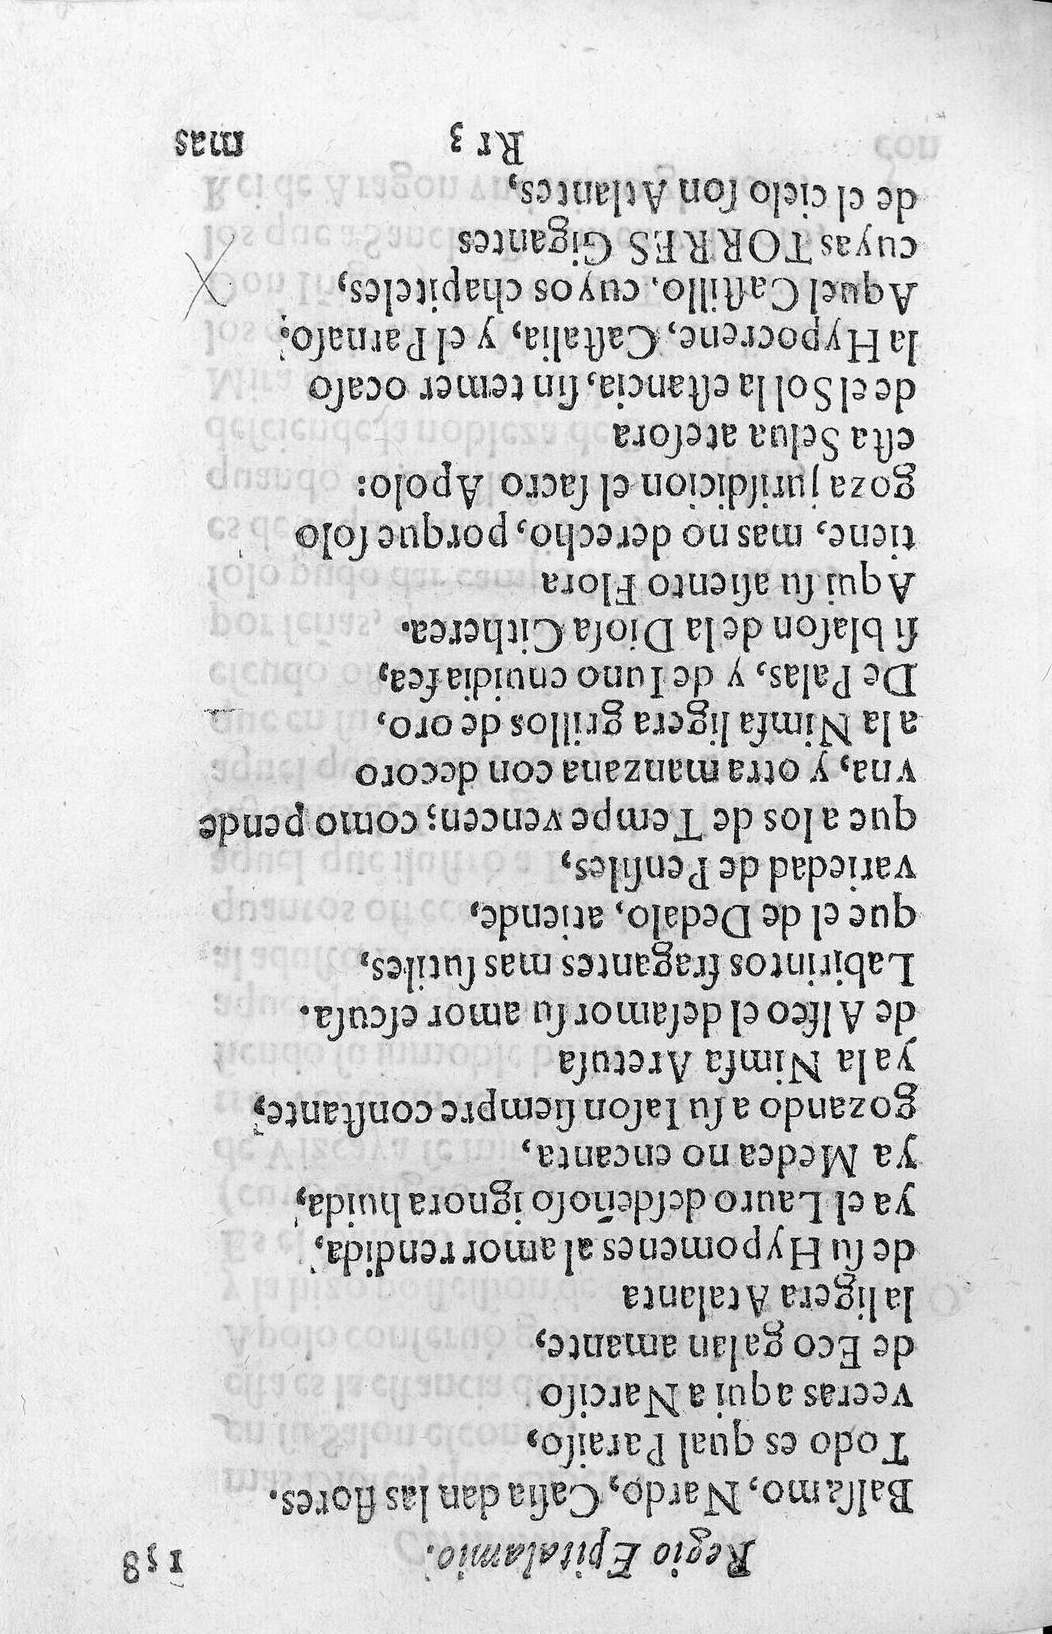 Regio Epitalamio. 158
Balſamo, Nardo, Caſia dan las flores.
Todo es qual Paraiſo,
veeras aqui a Narciſo
de Eco galan amante,
la ligera Atalanta
de ſu Hypomenes al amor rendida,
ya el Lauro deſdeñoſo ignora huida,
ya Medea no encanta,
gozando a ſu Iaſon ſiempre conſtante,
ya la Nimfa Aretuſa
de Alfeo el deſamor ſu amor eſcuſa.
Labirintos fragantes mas ſutiles,
que el de Dedalo, atiende,
variedad de Penſiles,
que a los de Tempe vencen; como pende
vna, y otra manzana con decoro
a la Nimfa ligera grillos de oro,
De Palas, y de Iuno enuidia fea,
ſi blaſon de la Dioſa Citherea.
Aqui ſu aſiento Flora
tiene, mas no derecho, porque ſolo
goza juriſdicion el ſacro Apolo:
eſta Selua ateſora
de el Sol la eſtancia, ſin temer ocaſo
la Hypocrene, Caſtalia, y el Parnaſo;
Aquel Caſtillo, cuyos chapiteles,
cuyas TORRES Gigantes
de el cielo ſon Atlantes,
Rr 3 mas